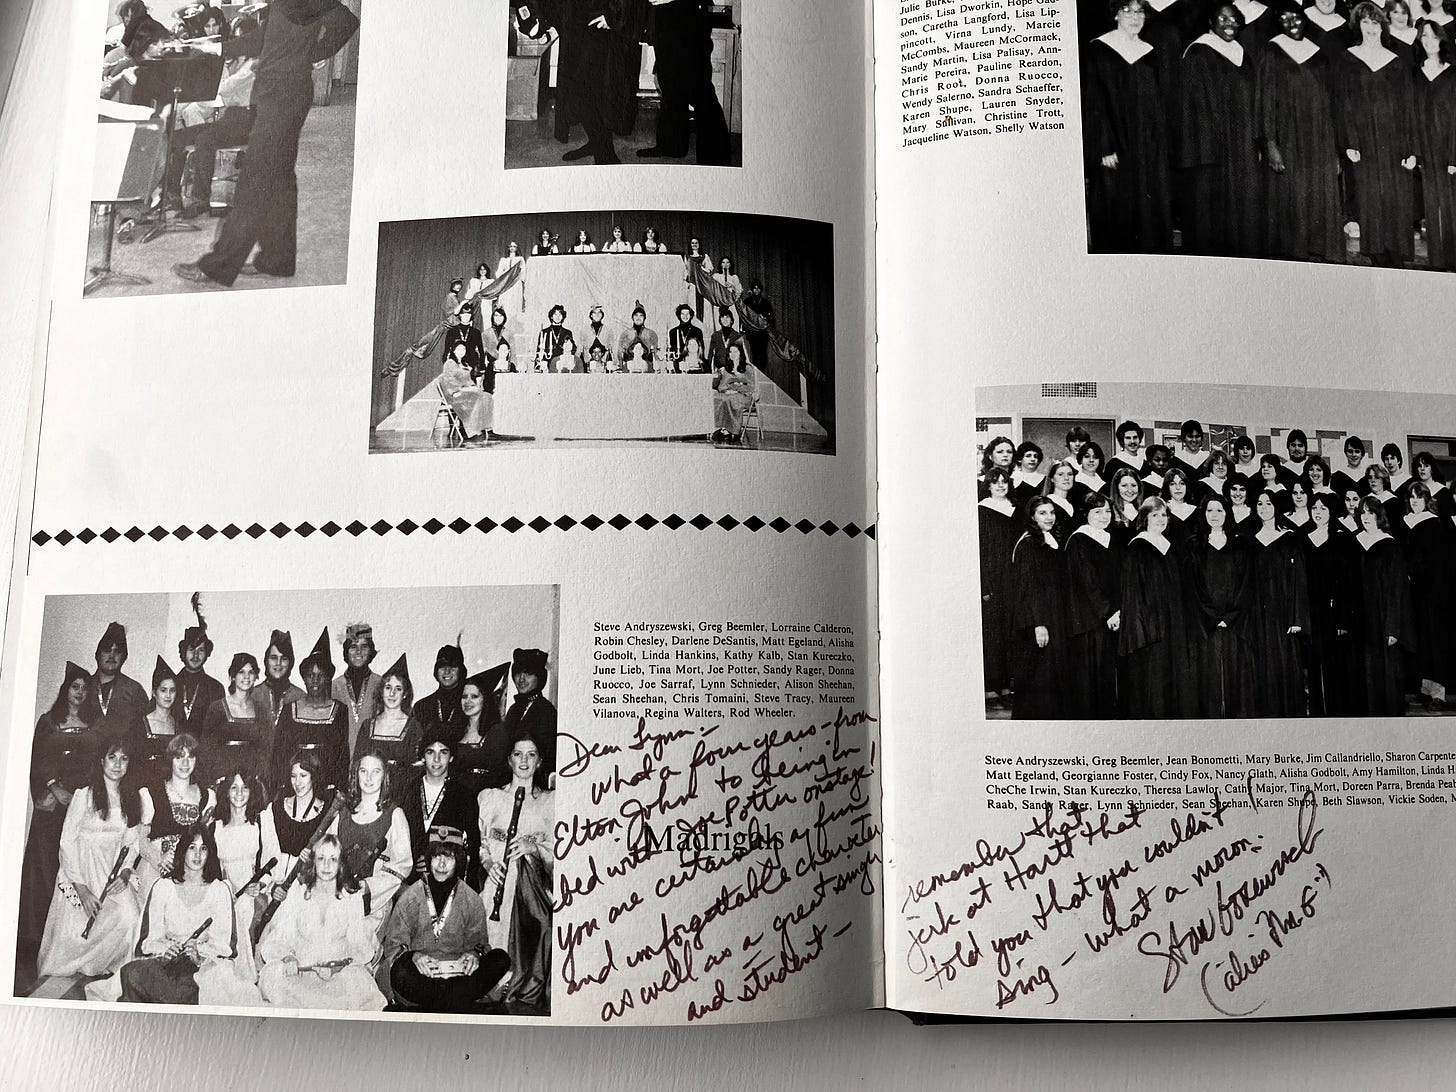 Steve Andryszewski, Greg Beemler, Lorraine Calderon,
Robin Chesley, Darlene DeSantis, Matt Egeland, Alisha
Godbolt, Linda Hankins, Kathy Kalb, Stan Kureczko,
June Lieb, Tina Mort, Joe Potter, Sandy Rager, Donna
Ruocco, Joe Sarraf, Lynn Schnieder, Alison Sheehan,
Sean Sheehan, Chris Tomaini, Steve Tracy, Maureen
Vilanova, Regina Walters, Rod Wheeler.
Dear Lynn -
What a four years - from
Elton John to being in
bed with Joe Potter onstage!
Madrigals
You are certainly a fun
and unforgettable character
as well as a great singer
and student -
Julie Burke,
Dennis, Lisa Dworkin, Hope Gad-
son, Caretha Langford, Lisa Lip-
pincott, Virna Lundy, Marcie
McCombs, Maureen McCormack,
Sandy Martin, Lisa Palisay, Ann-
Marie Pereira, Pauline Reardon,
Chris Root, Donna Ruocco,
Wendy Salerno, Sandra Schaeffer,
Karen Shupe, Lauren Snyder,
Mary Sullivan, Christine Trott,
Jacqueline Watson, Shelly Watson
Steve Andryszewski, Greg Beemler, Jean Bonometti, Mary Burke, Jim Callandriello, Sharon Carpente
Matt Egeland, Georgianne Foster, Cindy Fox, Nancy Glath, Alisha Godbolt, Amy Hamilton, Linda H
CheChe Irwin, Stan Kureczko, Theresa Lawlor, Cathy Major, Tina Mort, Doreen Parra, Brenda Peab
Raab, Sandy Rager, Lynn Schnieder, Sean Sheehan, Karen Shupe, Beth Slawson, Vickie Soden, M
remember that
jerk at Hartt that
told you that you couldn't
sing - what a moron!
(alias Mr. G")